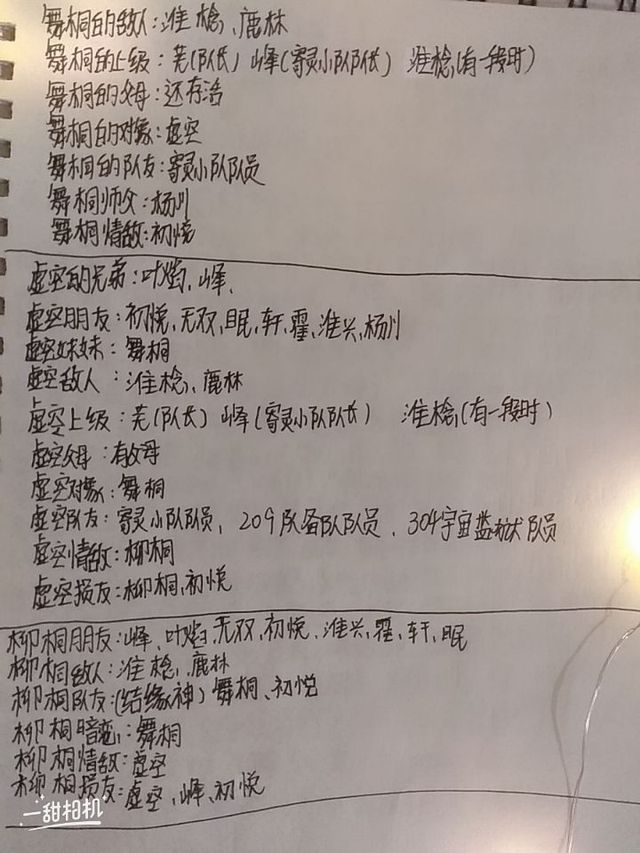 舞桐的敌人:淮桧、鹿林
舞桐的上级:芜(队长) 峰(寄灵小队队长) 淮桧(有一段时)
舞桐的父母:还存活
舞桐的对象:虚空
舞桐的队友:寄灵小队队员
舞桐师父:杨川
舞桐情敌:初悦
虚空的兄弟:叶 、峰、
虚空朋友:初悦、无双、眠、轩、霍、淮兴、杨川
虚空妹妹:舞桐
虚空敌人:淮桧、鹿林
虚空上级:芜(队长) 峰(寄灵小队队长) 淮桧(有一段时)
虚空父母:有父母
虚空对象:舞桐
虚空队友:寄灵小队队员、209队备队队员、304宇宙监狱队员
虚空情敌:柳桐
虚空损友:柳桐、初悦
柳桐朋友:峰、叶 、无双、初悦、淮兴、霍、轩、眠
柳桐敌人:淮桧、鹿林
柳桐队友:(结缘神)舞桐、初悦
柳桐暗恋:舞桐
柳桐情敌:虚空
柳桐损友:虚空、峰、初悦
甜相机